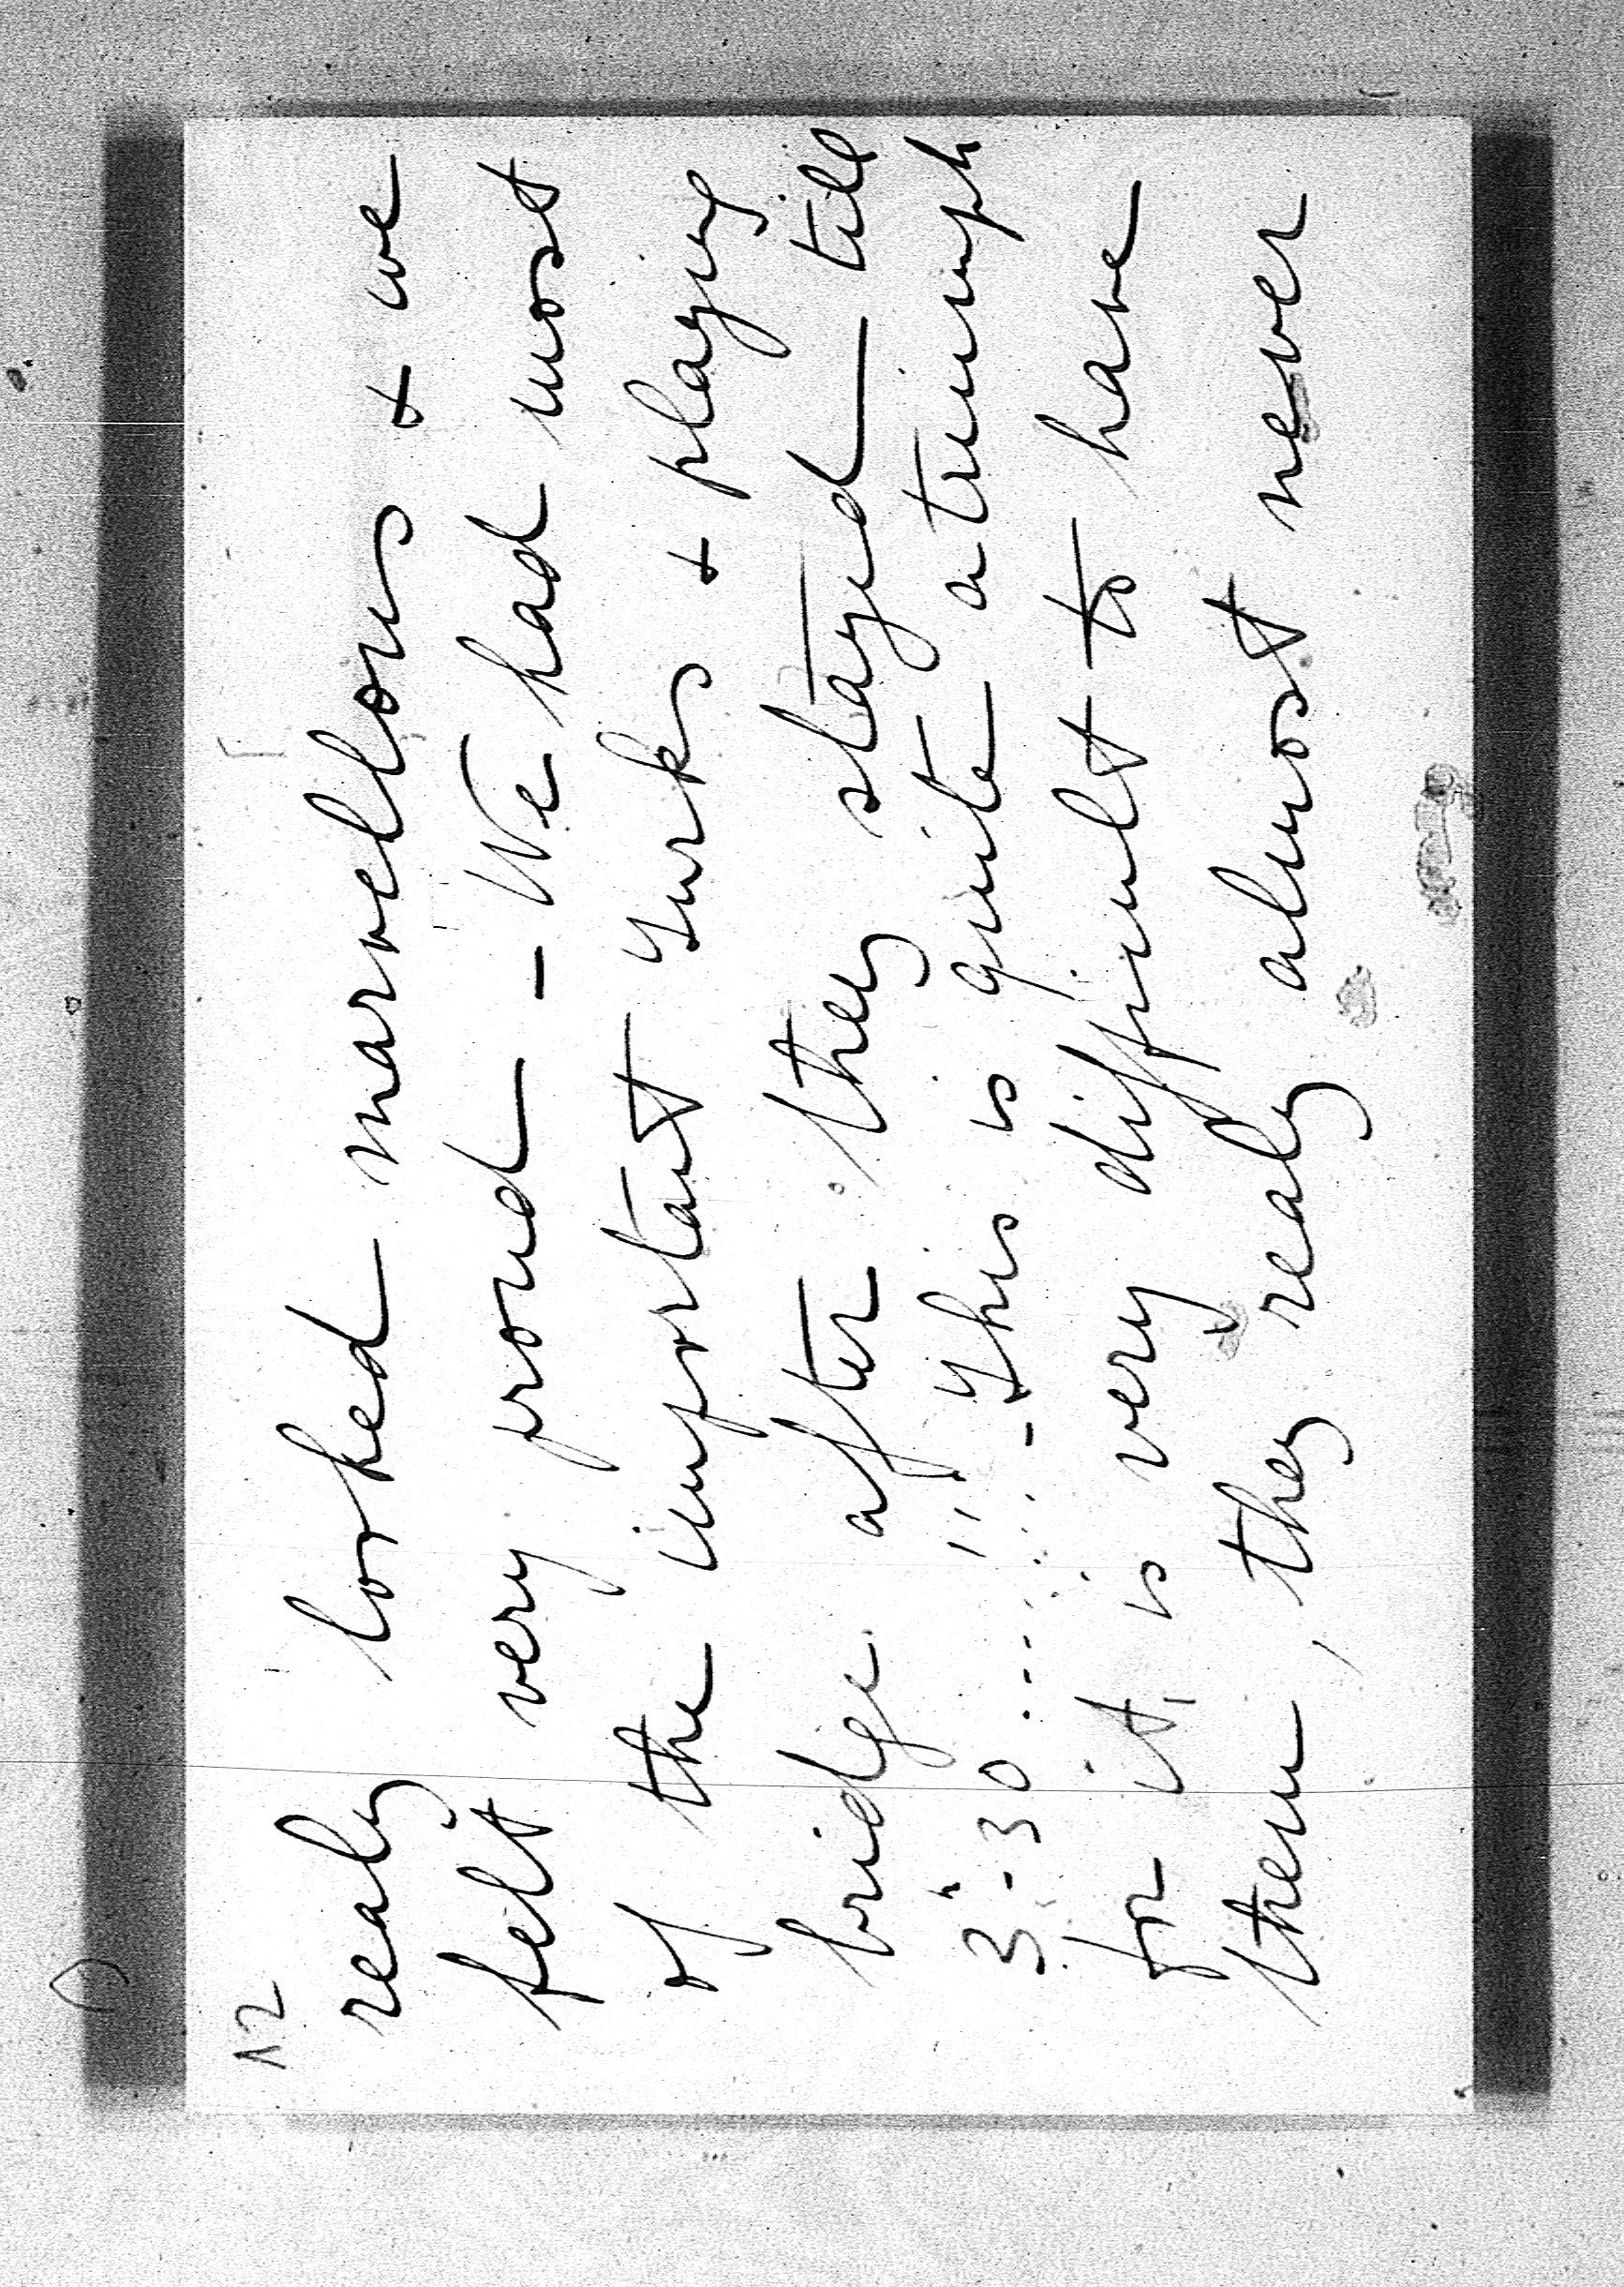 12
realy looked marvellous + we
felt very proud - We had most
of the important Turks + playing
bridge after they stayed till
3 - 30 ........ - This is quite a triumph
for it, is very difficult to have
them, they realy almost never